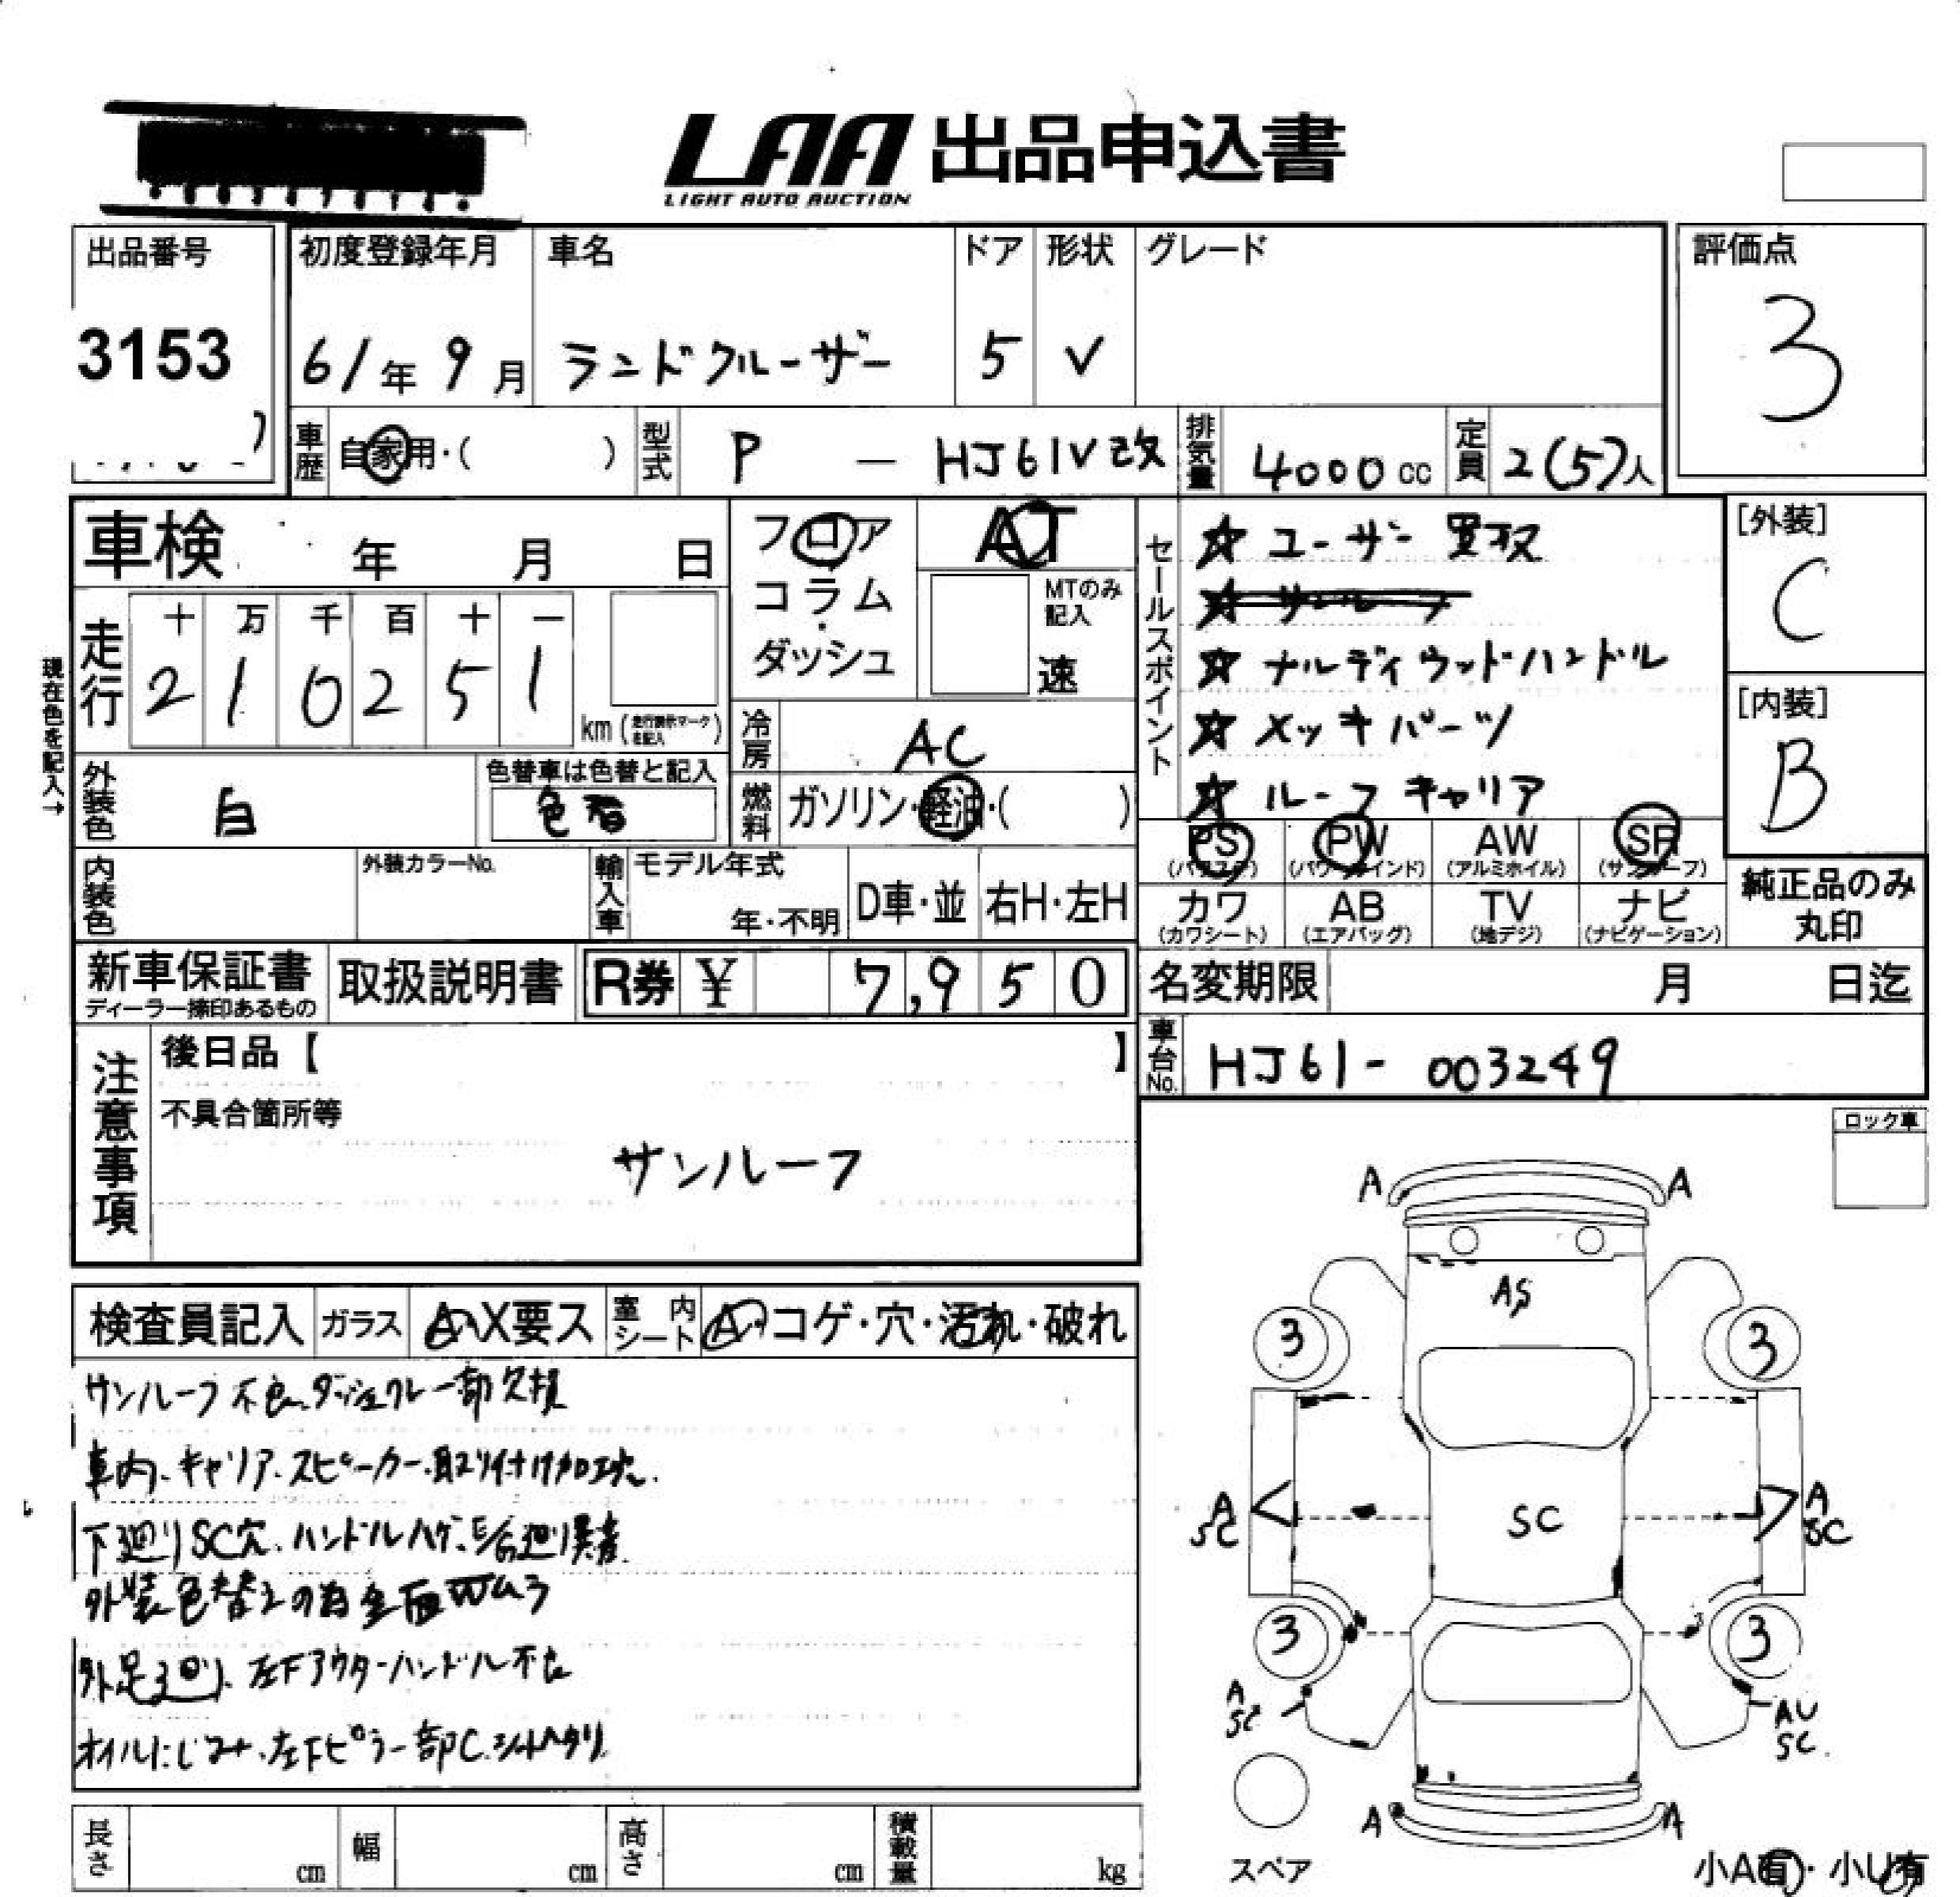 LAA 出品申込書
LIGHT AUTO AUCTION
出品番号
3153
初度登録年月
61年 9月
車名
ランドクルーザー
ドア
5
形状
V
グレード
評価点
3
車歴 自家用・( )
型式 P - HJ61V改
排気量 4000cc
定員 2(5)人
車検 年 月 日
フロア
コラム
ダッシュ
AT
MTのみ記入
速
セールスポイント
☆ ユーザー買取
☆ サンルーフ
☆ ナルディウッドハンドル
☆ メッキパーツ
☆ ルーフキャリア
[外装]
C
[内装]
B
現在色を記入→
走行
十 万 千 百 十 一
2 1 0 2 5 1
km (走行表示マークを記入)
冷房 AC
外装色 白
色替車は色替と記入
色替
燃料 ガソリン・軽油・( )
PS PW AW SR
(パワステ) (パワーウインド) (アルミホイル) (サンルーフ)
カワ AB TV ナビ
(カワシート) (エアバッグ) (地デジ) (ナビゲーション)
純正品のみ
丸印
内装色
外装カラーNo.
輸入車
モデル年式
年・不明
D車・並
右H・左H
新車保証書
ディーラー捺印あるもの
取扱説明書
R券 ¥ 7,950
名変期限 月 日迄
車台No. HJ61-003249
注意事項
後日品【 】
不具合箇所等
サンルーフ
ロック車
検査員記入 ガラス A・X要ス 室内シート A・コゲ・穴・汚れ・破れ
サンルーフ不良、ダッシュクレ一部欠損
車内、キャリア、スピーカー、取り付け加工穴
下廻りSC穴、ハンドルハゲ、
外装色替えの為全面W
外足廻り、左Fアウターハンドル不良
オイルにじみ、左Fピラー部C、シートヘタリ
A A
AS
3 3
A
SC
SC
A
SC
3 3
A
SC
AU
SC
A A
スペア
小A有・小U有
長さ cm
幅 cm
高さ cm
積載量 kg